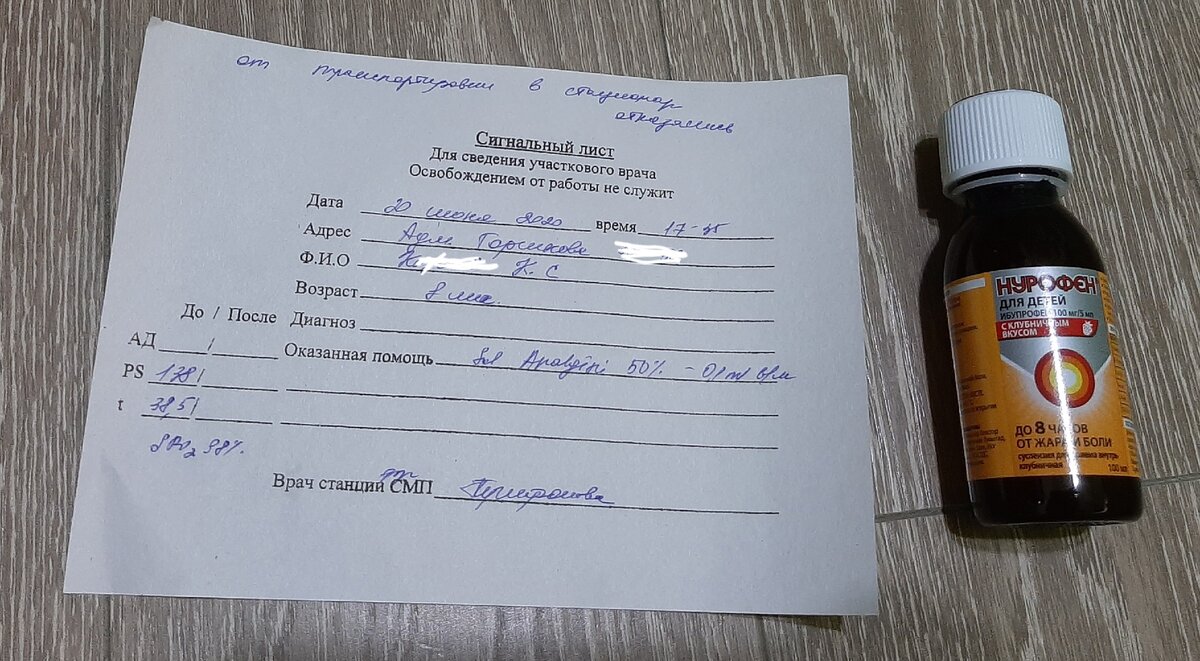 от транспортировки в стационар
отказались
Сигнальный лист
Для сведения участкового врача
Освобождением от работы не служит
Дата 20 июня 2020 время 17-35
Адрес Адм. Горшкова
Ф.И.О К. С
Возраст 8 мес.
До / После Диагноз
АД / Оказанная помощь Sol 50% - 0,1 ml в/м
PS 138/
t 38,5/
SPO2 98%.
Врач станции СМП
НУРОФЕН
ДЛЯ ДЕТЕЙ
ИБУПРОФЕН 100 мг/5 мл
С КЛУБНИЧНЫМ
ВКУСОМ
ДО 8 ЧАСОВ
ОТ ЖАРА И БОЛИ
суспензия для приема внутрь
клубничная 100 мл